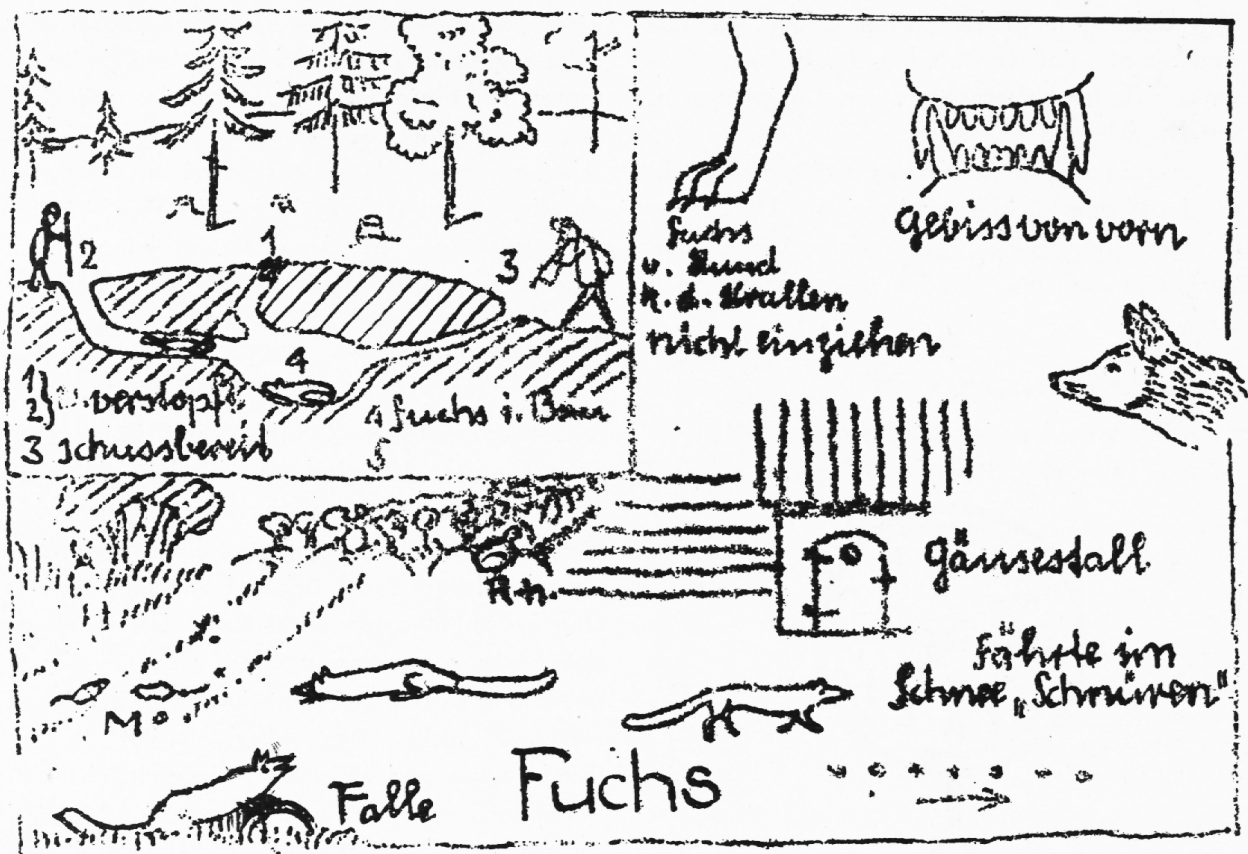 1
2
3
4
1
2 } verstopf
3 schussbereit
4 Fuchs i. Bau
5
Fuchs
u. Hund
k. d. Krallen
nicht einziehen
Gebiss von vorn
Gänsestall
Rh.
Mo
Fährte im
Schnee „Schnüren"
Falle
Fuchs